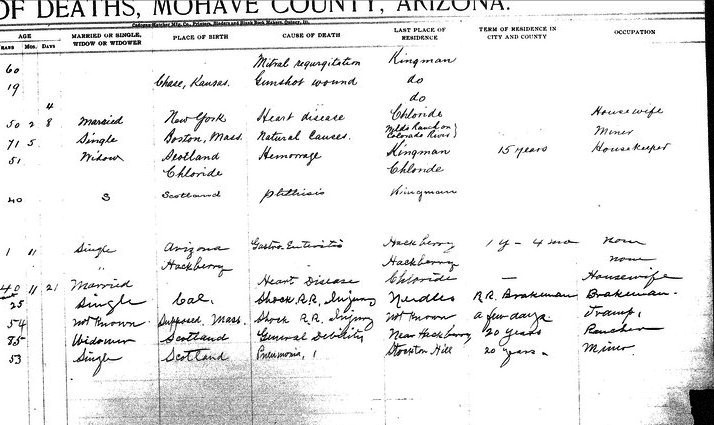 OF DEATHS, MOHAVE COUNTY, ARIZONA.
AGE MARRIED OR SINGLE, WIDOW OR WIDOWER PLACE OF BIRTH CAUSE OF DEATH LAST PLACE OF RESIDENCE TERM OF RESIDENCE IN CITY AND COUNTY OCCUPATION
YEARS MOS. DAYS
60 Mitral regurgitation Kingman
19 Chase, Kansas. Gunshot wound do
4 do
50 2 8 Married New York Heart disease Chloride Housewife
71 5 Single Boston, Mass. Natural Causes. Ranch on Colorado River } Miner
51 Widow Scotland Hemorrage Kingman 15 years Housekeeper
Chloride Chloride
40 S Scotland phthisis Kingman
1 11 Single Arizona Gastro-Enteritis Hackberry 1 y - 4 mo none
" Hackberry Hackberry none
40 11 21 Married Heart Disease Chloride — Housewife
25 Single Cal. Shock R.R. Injury Needles R.R. Brakeman Brakeman
54 Not Known Supposed, Mass. Shock R.R. Injury Not Known a few days. Tramp,
85 Widower Scotland General Debility Near Hackberry 20 years Rancher
53 Single Scotland Pneumonia, Stockton Hill 20 years. Miner